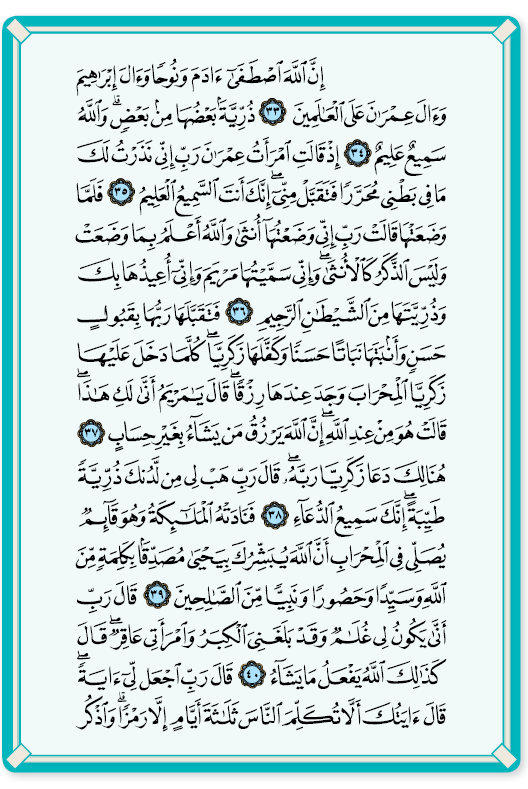 إِنَّ ٱللَّهَ ٱصۡطَفَىٰٓ ءَادَمَ وَنُوحٗا وَءَالَ إِبۡرَٰهِيمَ
وَءَالَ عِمۡرَٰنَ عَلَى ٱلۡعَٰلَمِينَ ٣٣ ذُرِّيَّةَۢ بَعۡضُهَا مِنۢ بَعۡضٖۗ وَٱللَّهُ
سَمِيعٌ عَلِيمٌ ٣٤ إِذۡ قَالَتِ ٱمۡرَأَتُ عِمۡرَٰنَ رَبِّ إِنِّي نَذَرۡتُ لَكَ
مَا فِي بَطۡنِي مُحَرَّرٗا فَتَقَبَّلۡ مِنِّيٓۖ إِنَّكَ أَنتَ ٱلسَّمِيعُ ٱلۡعَلِيمُ ٣٥ فَلَمَّا
وَضَعَتۡهَا قَالَتۡ رَبِّ إِنِّي وَضَعۡتُهَآ أُنثَىٰ وَٱللَّهُ أَعۡلَمُ بِمَا وَضَعَتۡ
وَلَيۡسَ ٱلذَّكَرُ كَٱلۡأُنثَىٰۖ وَإِنِّي سَمَّيۡتُهَا مَرۡيَمَ وَإِنِّيٓ أُعِيذُهَا بِكَ
وَذُرِّيَّتَهَا مِنَ ٱلشَّيۡطَٰنِ ٱلرَّجِيمِ ٣٦ فَتَقَبَّلَهَا رَبُّهَا بِقَبُولٍ
حَسَنٖ وَأَنۢبَتَهَا نَبَاتًا حَسَنٗا وَكَفَّلَهَا زَكَرِيَّاۖ كُلَّمَا دَخَلَ عَلَيۡهَا
زَكَرِيَّا ٱلۡمِحۡرَابَ وَجَدَ عِندَهَا رِزۡقٗاۖ قَالَ يَٰمَرۡيَمُ أَنَّىٰ لَكِ هَٰذَاۖ
قَالَتۡ هُوَ مِنۡ عِندِ ٱللَّهِۖ إِنَّ ٱللَّهَ يَرۡزُقُ مَن يَشَآءُ بِغَيۡرِ حِسَابٍ ٣٧
هُنَالِكَ دَعَا زَكَرِيَّا رَبَّهُۥۖ قَالَ رَبِّ هَبۡ لِي مِن لَّدُنكَ ذُرِّيَّةٗ
طَيِّبَةًۖ إِنَّكَ سَمِيعُ ٱلدُّعَآءِ ٣٨ فَنَادَتۡهُ ٱلۡمَلَٰٓئِكَةُ وَهُوَ قَآئِمٞ
يُصَلِّي فِي ٱلۡمِحۡرَابِ أَنَّ ٱللَّهَ يُبَشِّرُكَ بِيَحۡيَىٰ مُصَدِّقَۢا بِكَلِمَةٖ مِّنَ
ٱللَّهِ وَسَيِّدٗا وَحَصُورٗا وَنَبِيّٗا مِّنَ ٱلصَّٰلِحِينَ ٣٩ قَالَ رَبِّ
أَنَّىٰ يَكُونُ لِي غُلَٰمٞ وَقَدۡ بَلَغَنِيَ ٱلۡكِبَرُ وَٱمۡرَأَتِي عَاقِرٞۖ قَالَ
كَذَٰلِكَ ٱللَّهُ يَفۡعَلُ مَا يَشَآءُ ٤٠ قَالَ رَبِّ ٱجۡعَل لِّيٓ ءَايَةٗۖ
قَالَ ءَايَتُكَ أَلَّا تُكَلِّمَ ٱلنَّاسَ ثَلَٰثَةَ أَيَّامٍ إِلَّا رَمۡزٗاۗ وَٱذۡكُر